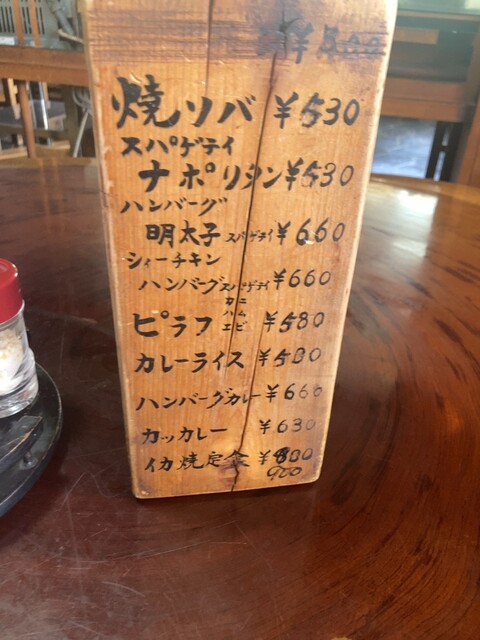 焼ソバ ¥530
スパゲテイ
ナポリタン ¥530
ハンバーグ
明太子 スパゲテイ ¥660
シィーチキン
ハンバーグ スパゲテイ ¥660
カニ
ハム
ピラフ エビ ¥580
カレーライス ¥580
ハンバーグカレー ¥660
カッカレー ¥630
イカ焼定食
900